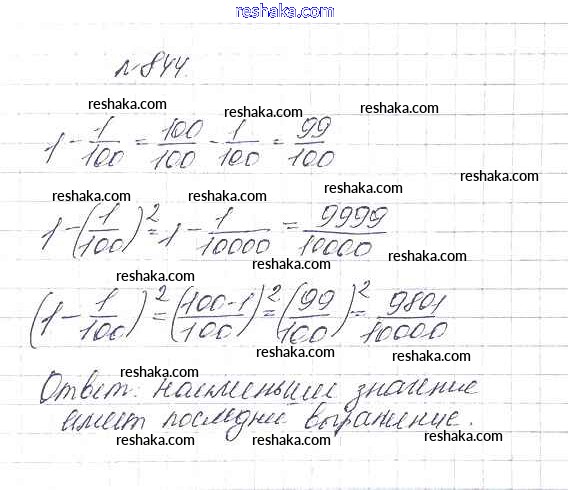 reshaka.com
№844.
reshaka.com
reshaka.com reshaka.com
1 - 1/100 = 100/100 - 1/100 = 99/100
reshaka.com
reshaka.com reshaka.com
1 - (1/100)² = 1 - 1/10000 = 9999/10000
reshaka.com
reshaka.com
(1 - 1/100)² = (100-1/100)² = (99/100)² = 9801/10000
reshaka.com
reshaka.com
Ответ: наименьшее значение
reshaka.com
имеет последнее выражение.
reshaka.com reshaka.com
reshaka.com
reshaka.com